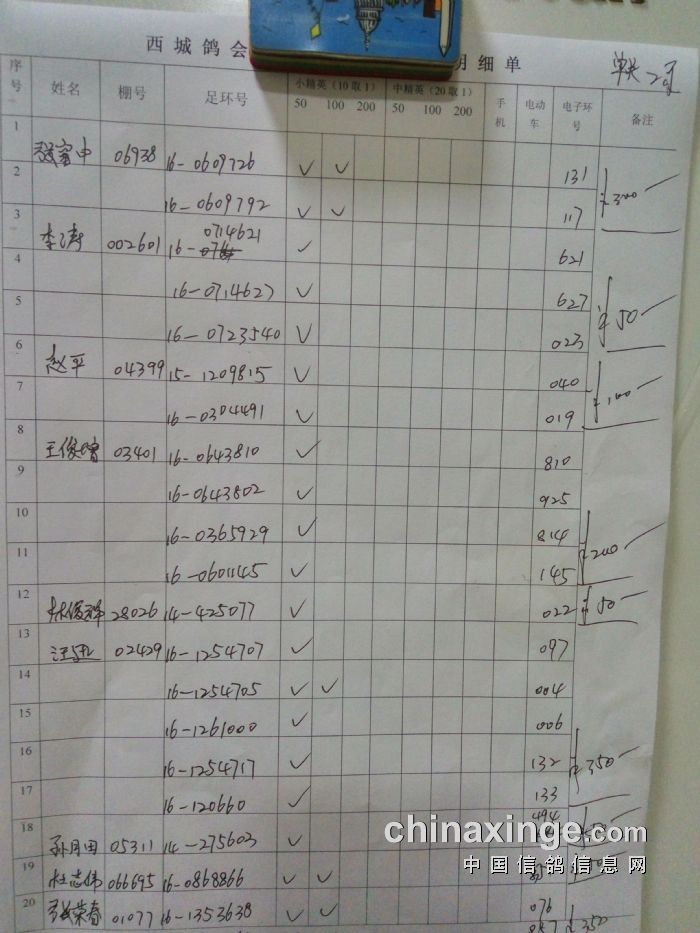 西城鸽会 明细单
单关 2页
序号 姓名 棚号 足环号 小精英（10取1） 中精英（20取1） 手机 电动车 电子环号 备注
50 100 200 50 100 200
1 06938 16-0609726 ✓ ✓ 131
2 16-0609792 ✓ ✓ 117 300
3 李涛 002601 16-0714621 ✓ 621
4 16-0714627 ✓ 627
5 16-0723540 ✓ 023 50
6 赵平 04399 15-1209815 ✓ 040
7 16-0304491 ✓ 019 100
8 王俊 03401 16-0643810 ✓ 810
9 16-0643802 ✓ 925
10 16-0365929 ✓ 814
11 16-0601145 ✓ 145 200
12 林俊祥 28026 14-425077 ✓ 022 50
13 汪 02429 16-1254707 ✓ 097
14 16-1254705 ✓ ✓ 004
15 16-1261000 ✓ 006
16 16-1254717 ✓ 132
17 16-120660 ✓ 133 350
18 孙月田 05311 14-275603 ✓ 494 50
19 杜志伟 066695 16-0868866 ✓ ✓
20 张荣春 01077 16-1353638 ✓ ✓ 076
350
chinaxinge.com
中国信鸽信息网